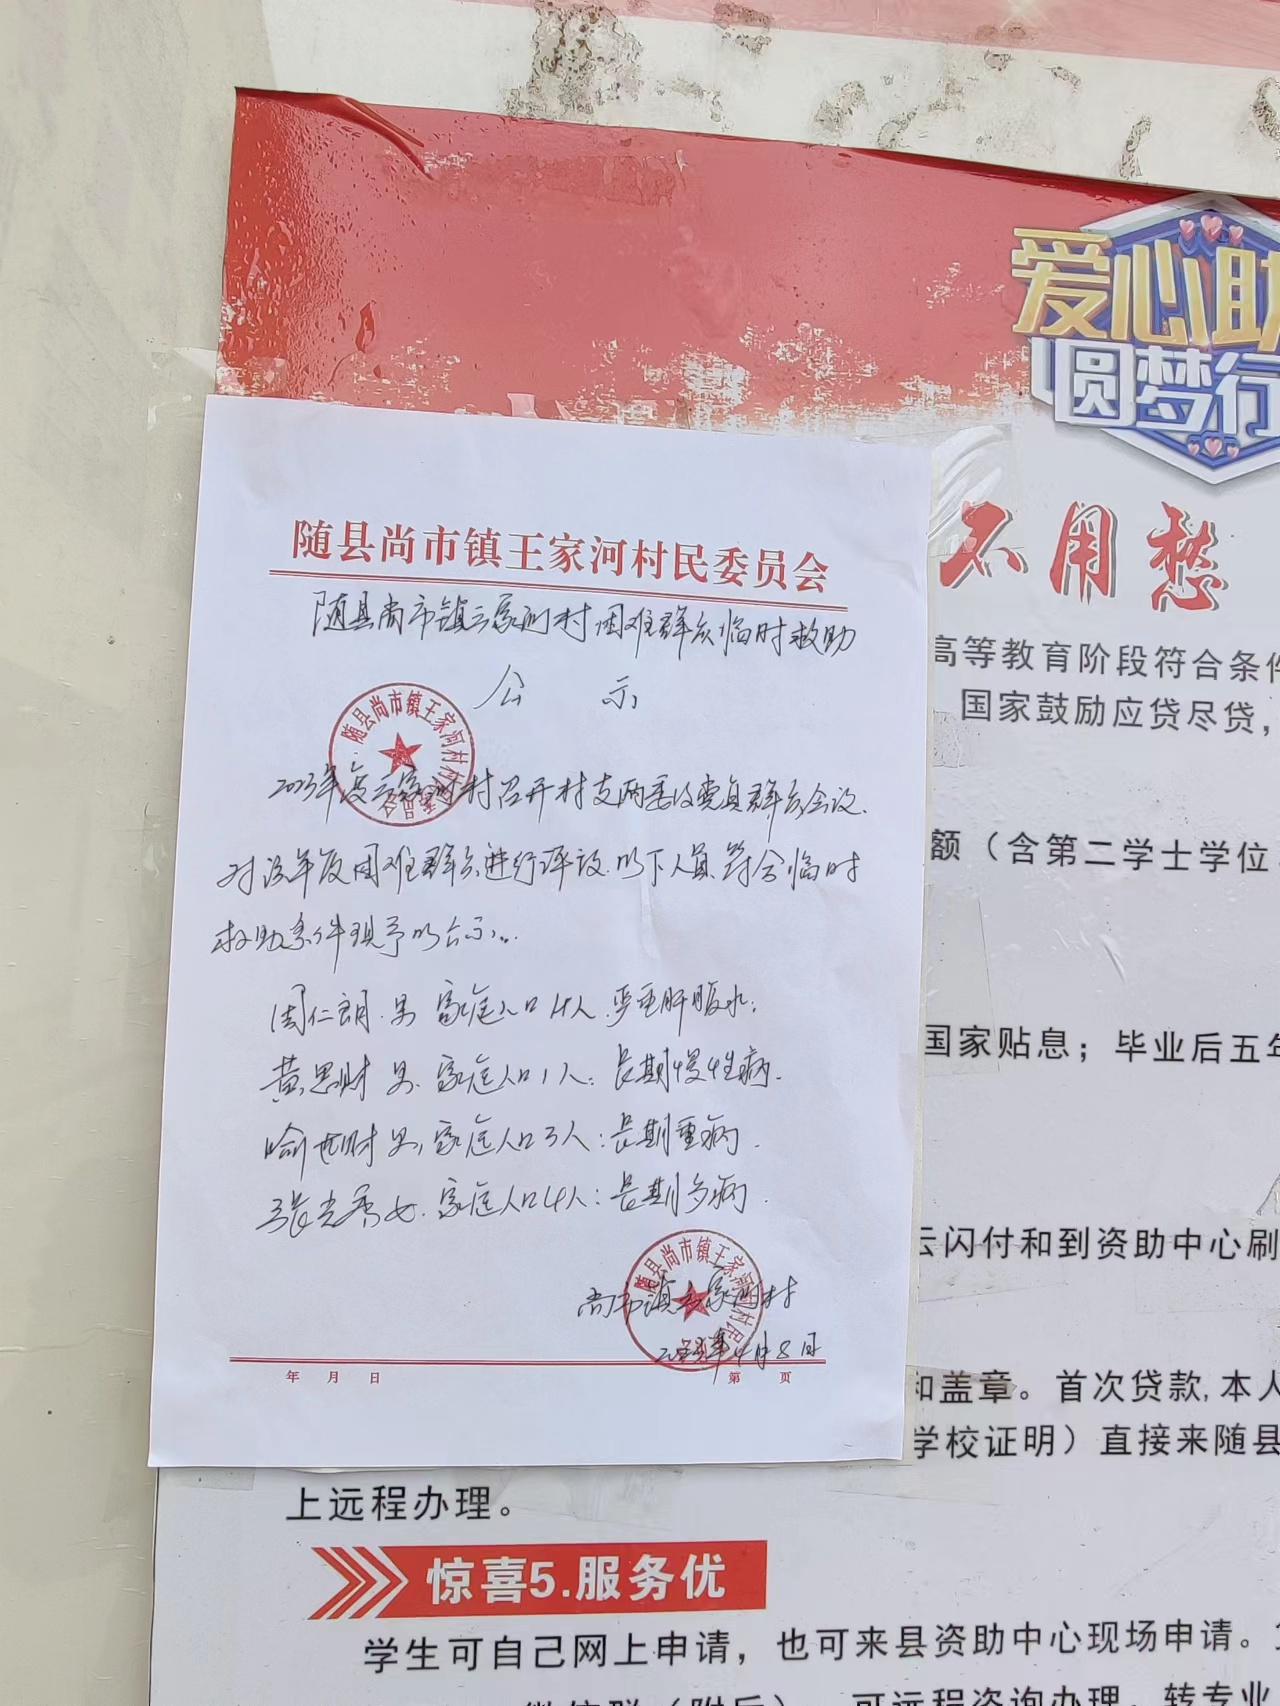 爱心助
圆梦行
不用愁
高等教育阶段符合条件
国家鼓励应贷尽贷，
额（含第二学士学位
国家贴息；毕业后五年
云闪付和到资助中心刷
和盖章。首次贷款,本人
学校证明）直接来随县
上远程办理。
惊喜5.服务优
学生可自己网上申请，也可来县资助中心现场申请。
可远程咨询办理。转专业
随县尚市镇王家河村民委员会
随县尚市镇王家河村困难群众临时救助
公示
随县尚市镇王家河村村民委员会
2023年度王家河村召开村支两委及党员群众会议.
对该年度困难群众进行评议.以下人员符合临时
救助条件现予以公示:..
周仁朗.男 家庭人口4人.严重肝腹水;
黄思财 男.家庭人口1人:长期慢性病.
喻世财 男,家庭人口3人:长期重病.
张光秀 女.家庭人口4人:长期多病.
随县尚市镇王家河村村民
尚市镇王家河村
2023年4月8日
年 月 日 第 页